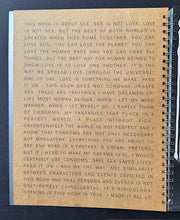 THIS BOOK IS ABOUT SEX. SEX IS NOT LOVE. LOVE
IS NOT SEX. BUT THE BEST OF BOTH WORLDS IS
CREATED WHEN THEY COME TOGETHER. YOU CAN
LOVE GOD, YOU CAN LOVE THE PLANET, YOU CAN
LOVE THE HUMAN RACE AND YOU CAN LOVE ALL
THINGS, BUT THE BEST WAY FOR HUMAN BEINGS TO
SHOW LOVE IS TO LOVE ONE ANOTHER. IT'S THE
WAY WE SPREAD LOVE THROUGH THE UNIVERSE:
ONE TO ONE. LOVE IS SOMETHING WE MAKE. PASS
IT ON. THIS BOOK DOES NOT CONDONE UNSAFE
SEX. THESE ARE FANTASIES I HAVE DREAMED UP.
LIKE MOST HUMAN BEINGS, WHEN I LET MY MIND
WANDER, WHEN I LET MYSELF GO, I RARELY THINK
OF CONDOMS. MY FANTASIES TAKE PLACE IN A
PERFECT WORLD, A PLACE WITHOUT AIDS.
UNFORTUNATELY THE WORLD IS NOT PERFECT AND I
KNOW THAT CONDOMS ARE NOT ONLY NECESSARY
BUT MANDATORY. EVERYTHING YOU ARE ABOUT TO
SEE AND READ IS A FANTASY, A DREAM, PRETEND.
BUT IF I WERE TO MAKE MY DREAMS REAL, I WOULD
CERTAINLY USE CONDOMS. SAFE SEX SAVES LIVES.
PASS IT ON. AND BY THE WAY, ANY SIMILARITY
BETWEEN CHARACTERS AND EVENTS DEPICTED IN
THIS BOOK AND REAL PERSONS AND EVENTS IS NOT
ONLY PURELY COINCIDENTAL, IT'S RIDICULOUS.
NOTHING IN THIS BOOK IS TRUE. I MADE IT ALL UP.